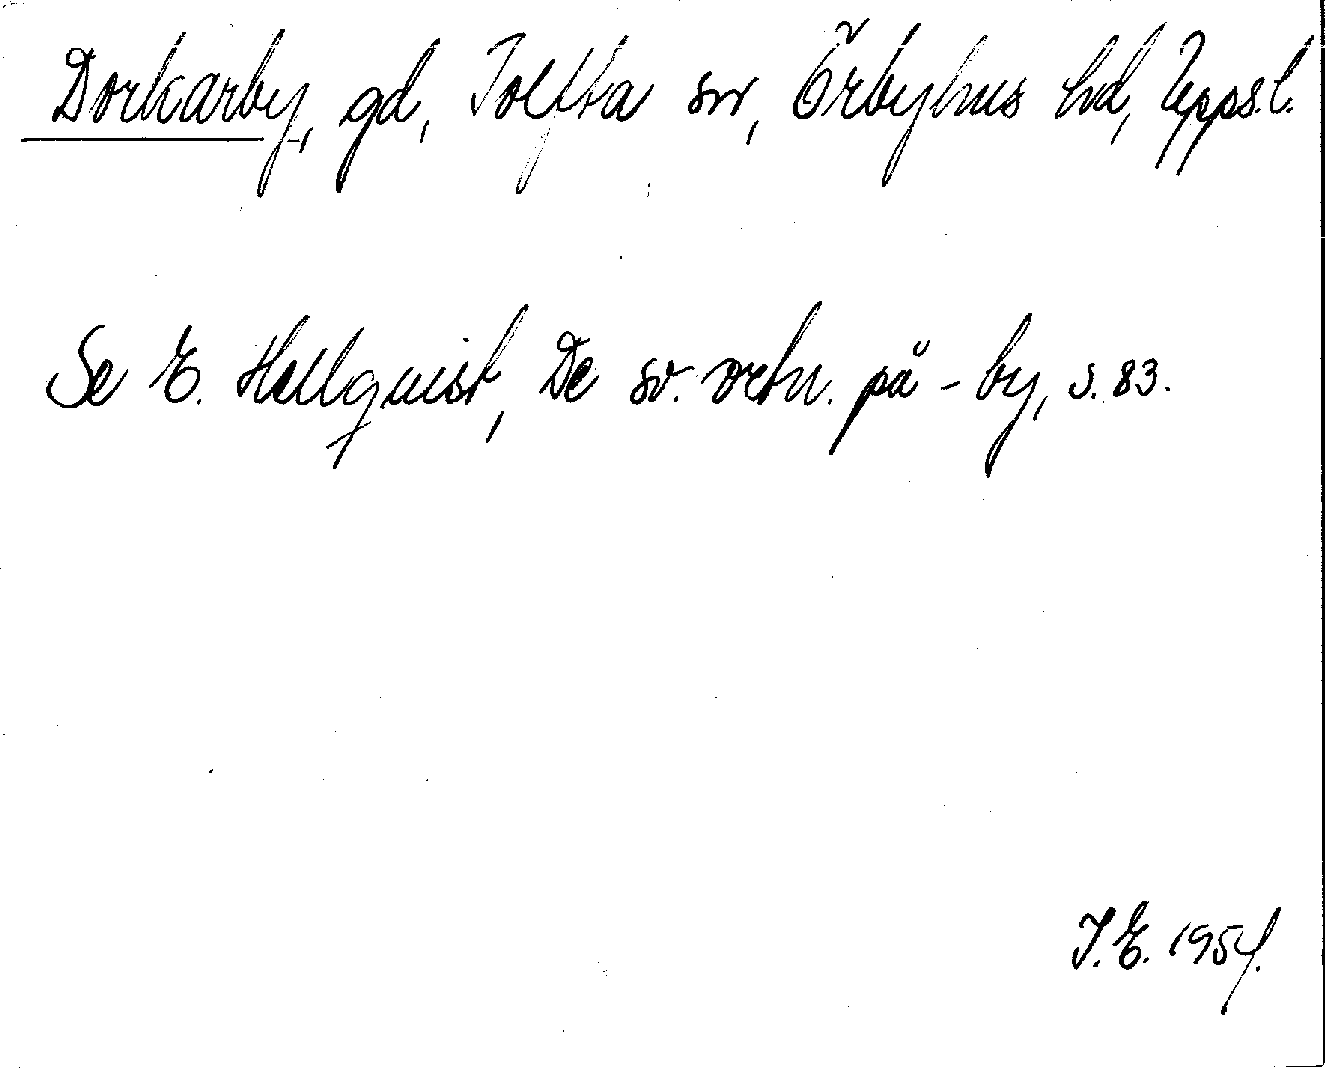 Dorkarby, gd, Tolfta sn, Örbyhus hd, Upps.l.
Se E. Hellquist, De sv. ortn. på -by, s. 83.
I.E. 1954.